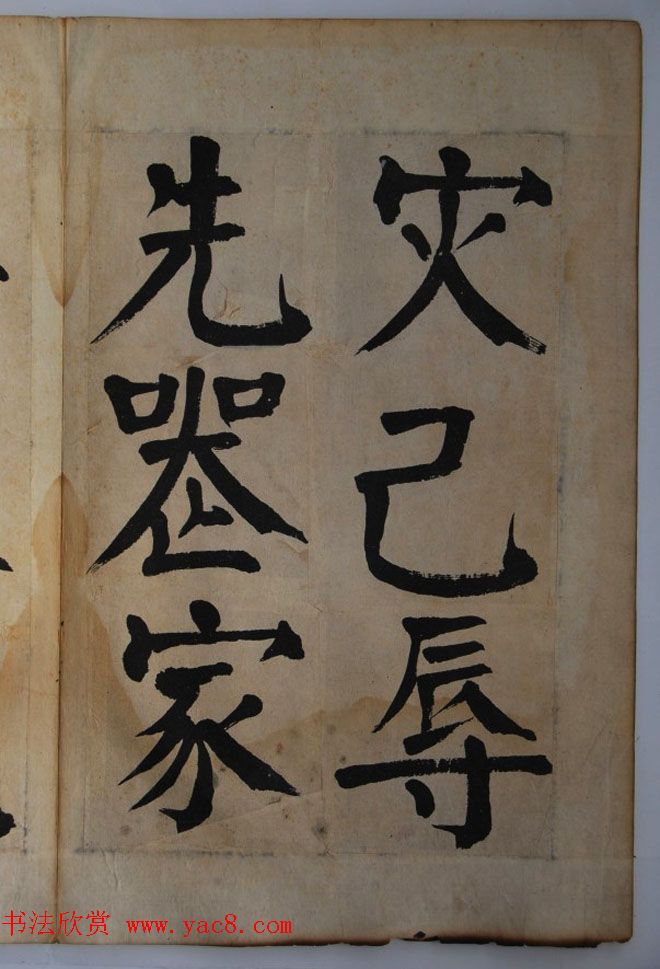 灾己辱
先喪家
书法欣赏 www.yac8.com